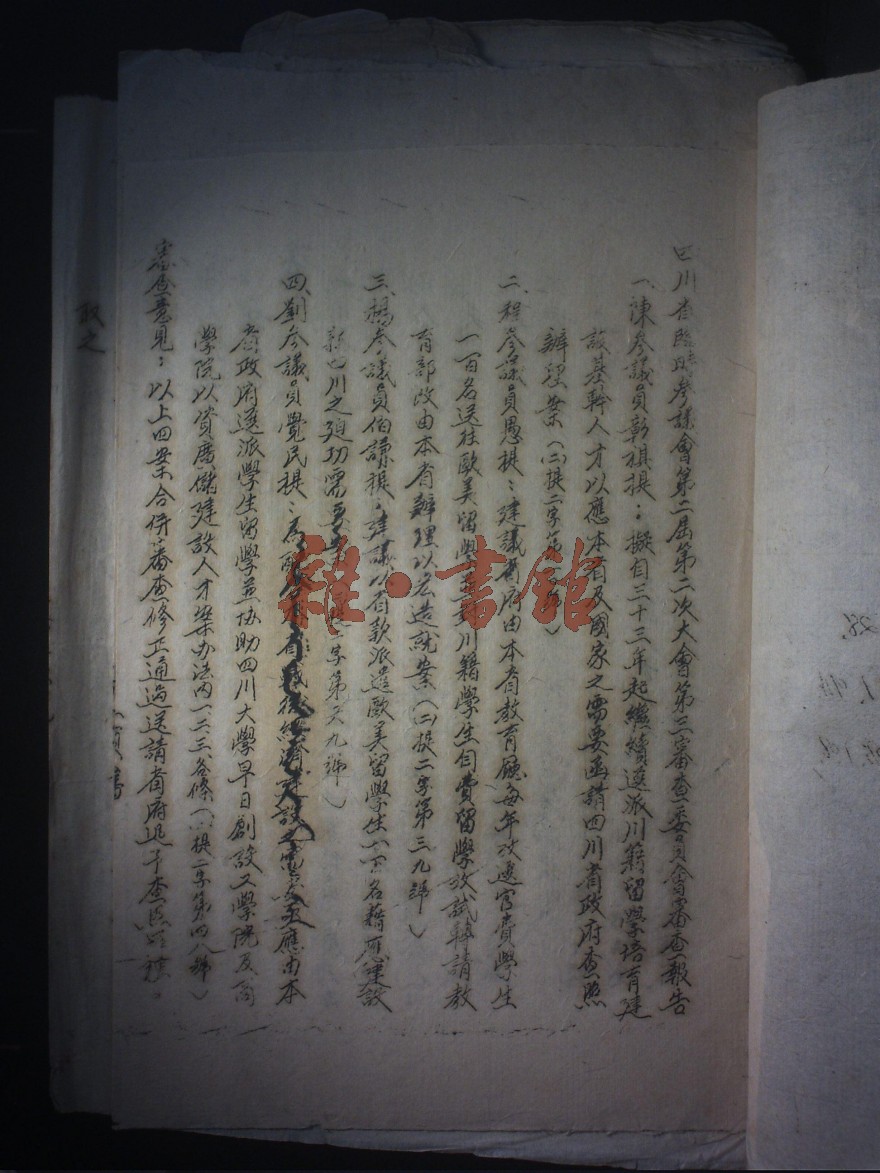 四川省臨時參議會第二屆第二次大會第三審查委員會審查報告
一、陳參議員彰祺提：擬自三十三年起繼續選派川籍留學培育建
設基幹人才以應本省及國家之需要函請四川省政府查照
辦理案（二提二字第　號）
二、程參議員愚提：建議省府由本省教育廳每年攷選官費學生
一百名送往歐美留學並對川籍學生自費留學攷試轉請教
育部改由本省辦理以宏造就案（二提二字第三九號）
三、楊參議員伯謙提：建議以省款派遣歐美留學生一百名藉應建設
新四川之廹切需要案　提二字第　九號）
四、劉參議員覺民提：為　本省戰後經濟建設之需要應由本
省政府選派學生留學並協助四川大學早日創設工學院及商
學院以資廣儲建設人才案办法內一二三各條（二提二字第四八號）
審查意見：以上四案合併審查修正通過送請省府迅予查照办理。
敢之
雜·書館